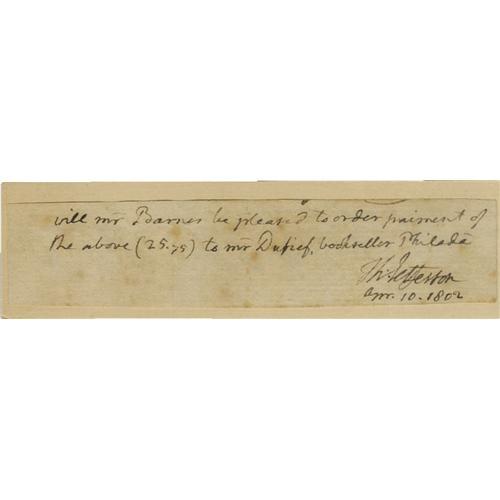 will mr Barnes be pleased to order paiment of
the above (25.75) to mr Dufief, bookseller Philada
Th: Jefferson
Apr. 10. 1802